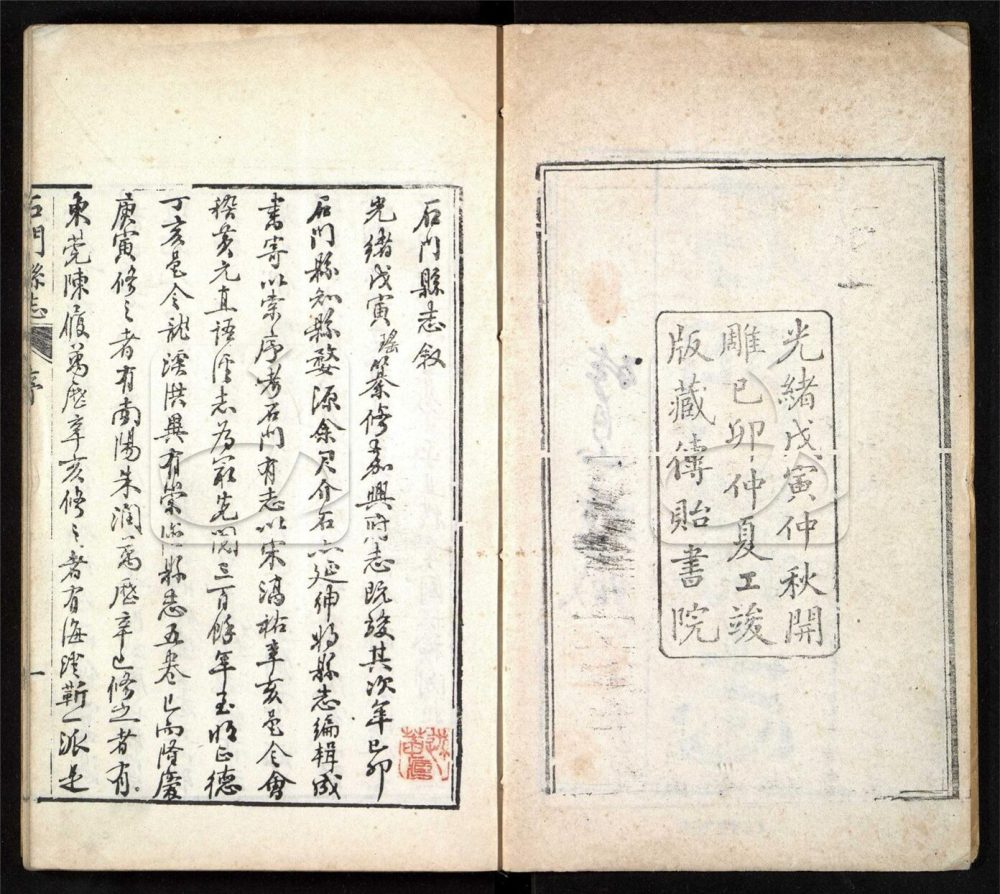 光緒戊寅仲秋開
雕己卯仲夏工竣
版藏傳貽書院
石門縣志敘
光緒戊寅瑤纂修嘉興府志既竣其次年己卯
石門縣知縣婺源余君介石亦延紳將縣志編輯成
書寄以索序考石門有志以宋淳祐辛亥邑令會
稽黃元直語溪志為最先閱三百餘年至明正德
丁亥邑令龍溪洪異有崇德縣志五卷已而隆慶
庚寅修之者有南陽朱潤萬歷辛巳修之者有
東莞陳履萬歷辛亥修之者有海澄靳一派是
石門縣志
序
一